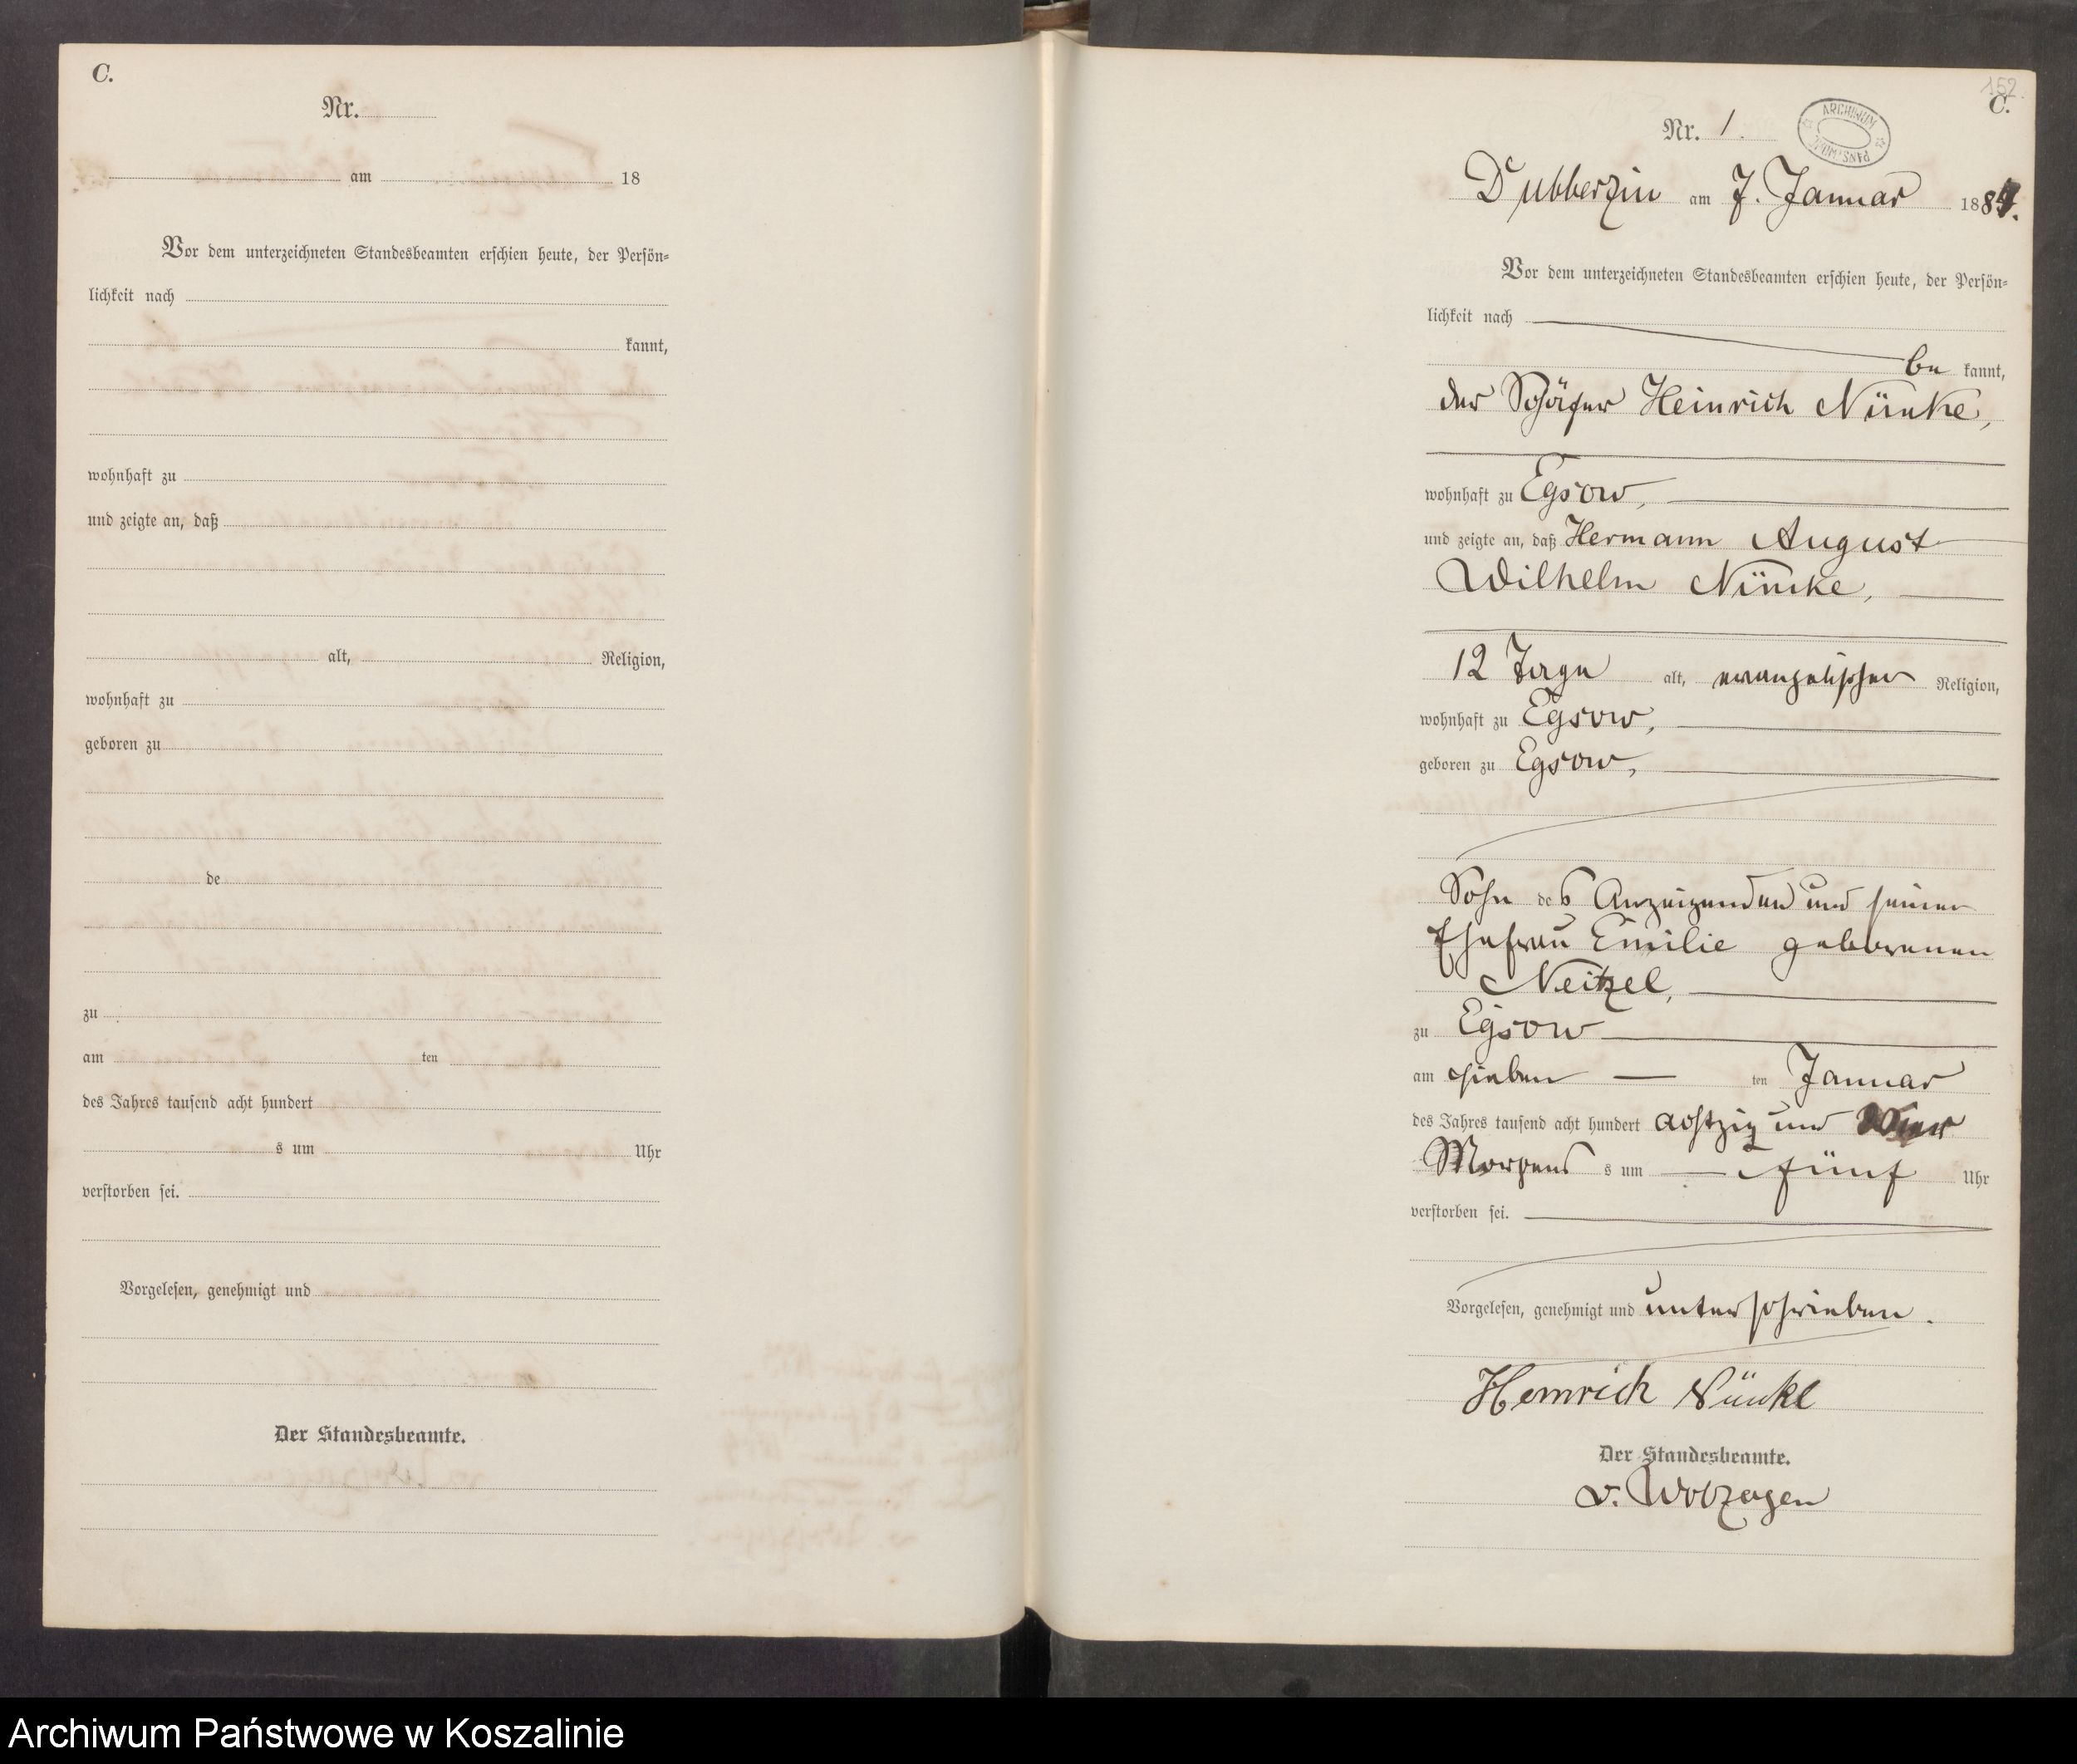 C.
Nr.
am 18
Vor dem unterzeichneten Standesbeamten erschien heute, der Persön-
lichkeit nach
kannt,
wohnhaft zu
und zeigte an, daß
alt, Religion,
wohnhaft zu
geboren zu
de
zu
am ten
des Jahres tausend acht hundert
s um Uhr
verstorben sei.
Vorgelesen, genehmigt und
Der Standesbeamte.
152.
C.
Nr. 1.
ARCHIWUM PAŃSTWOWE
Dubberzin am 7. Januar 1884.
Vor dem unterzeichneten Standesbeamten erschien heute, der Persön-
lichkeit nach
be kannt,
der Schäfer Heinrich Nünke,
wohnhaft zu Egsow,
und zeigte an, daß Hermann August
Wilhelm Nünke,
12 Tage alt, evangelischer Religion,
wohnhaft zu Egsow,
geboren zu Egsow,
Sohn des Anzeigenden und seiner
Ehefrau Emilie geborenen
Neitzel,
zu Egsow
am sieben ten Januar
des Jahres tausend acht hundert achtzig und vier
Morgens s um fünf Uhr
verstorben sei.
Vorgelesen, genehmigt und unterschrieben.
Heinrich Nünke
Der Standesbeamte.
v. Wolzogen
Archiwum Państwowe w Koszalinie